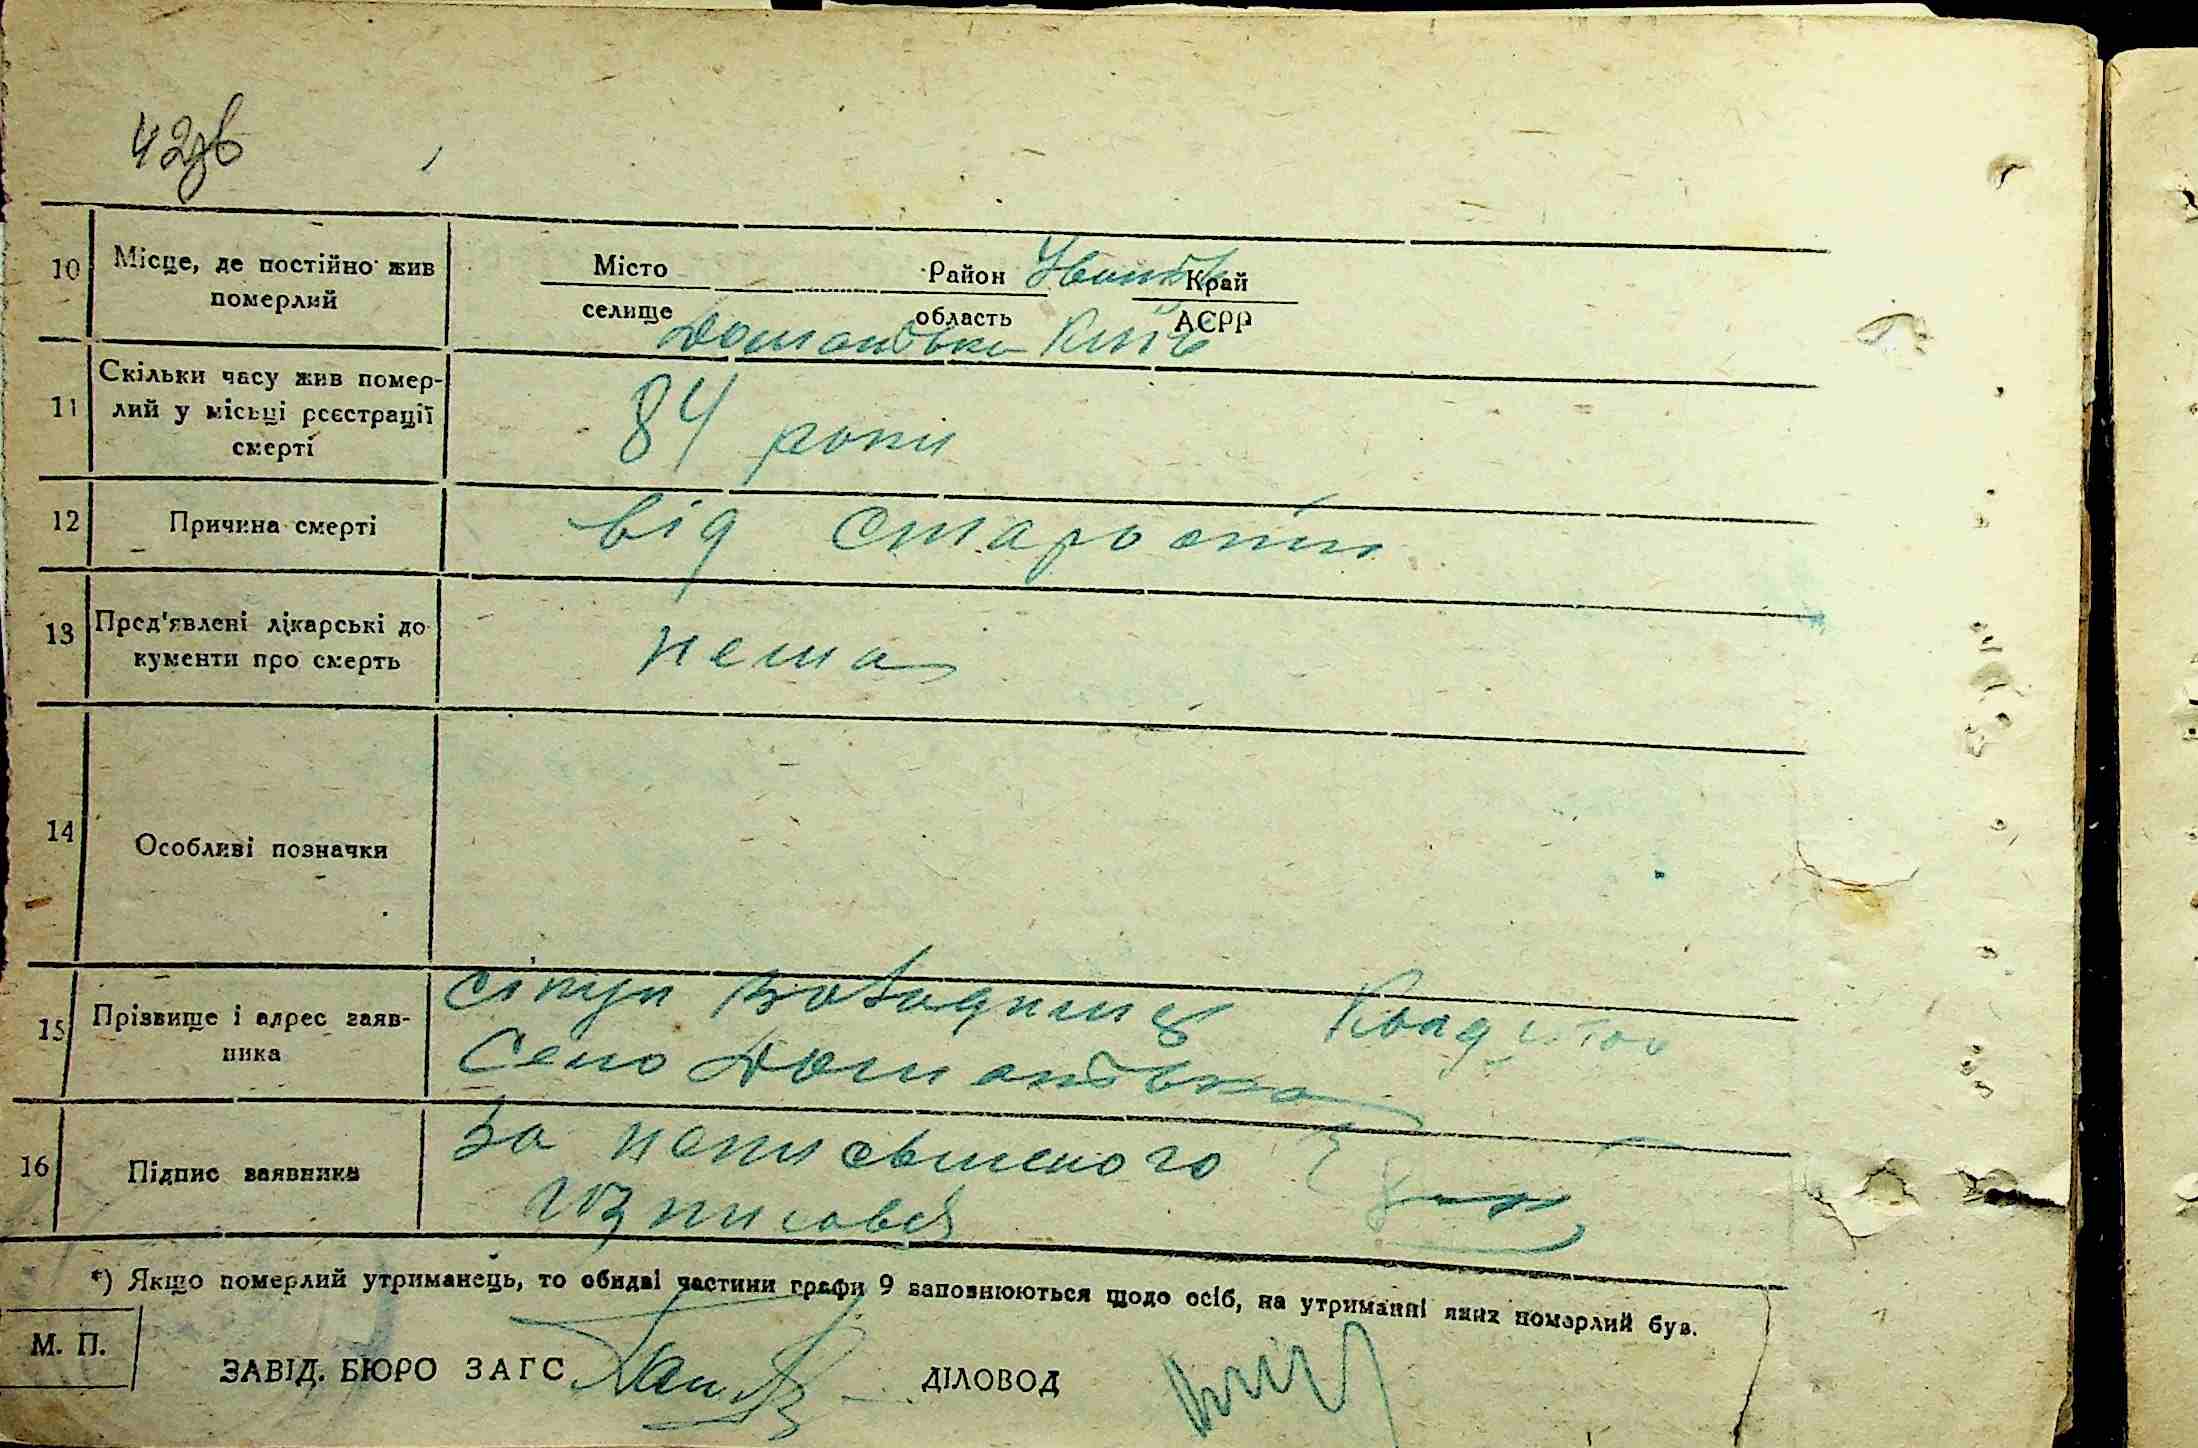 42зв
10 Місце, де постійно жив
померлий
Місто Район Край
селище область АСРР
Домантовка Київ
Скільки часу жив помер-
11 лий у місці реєстрації
смерті
84 роки
12 Причина смерті
від старости
13 Пред'явлені лікарські до
кументи про смерть
нема
14 Особливі позначки
15 Прізвище і адрес заяв-
ника
село Домантовка
16 Підпис заявника
за неписьменого
*) Якщо померлий утриманець, то обидві частини графи 9 заповнюються щодо осіб, на утриманні яких померлий був.
М. П.
ЗАВІД. БЮРО ЗАГС ДІЛОВОД